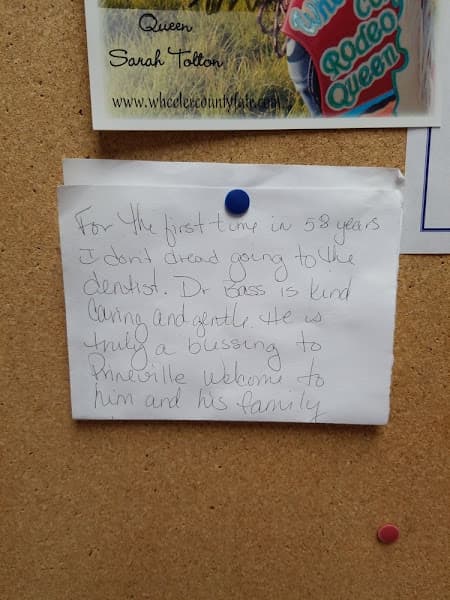 Queen
Sarah Tolton
www.wheelercountyfair.com
Co
Rodeo
Queen
For the first time in 58 years
I don't dread going to the
dentist. Dr Bass is kind
Caring and gentle. He is
truly a blessing to
Prineville Welcome to
him and his family